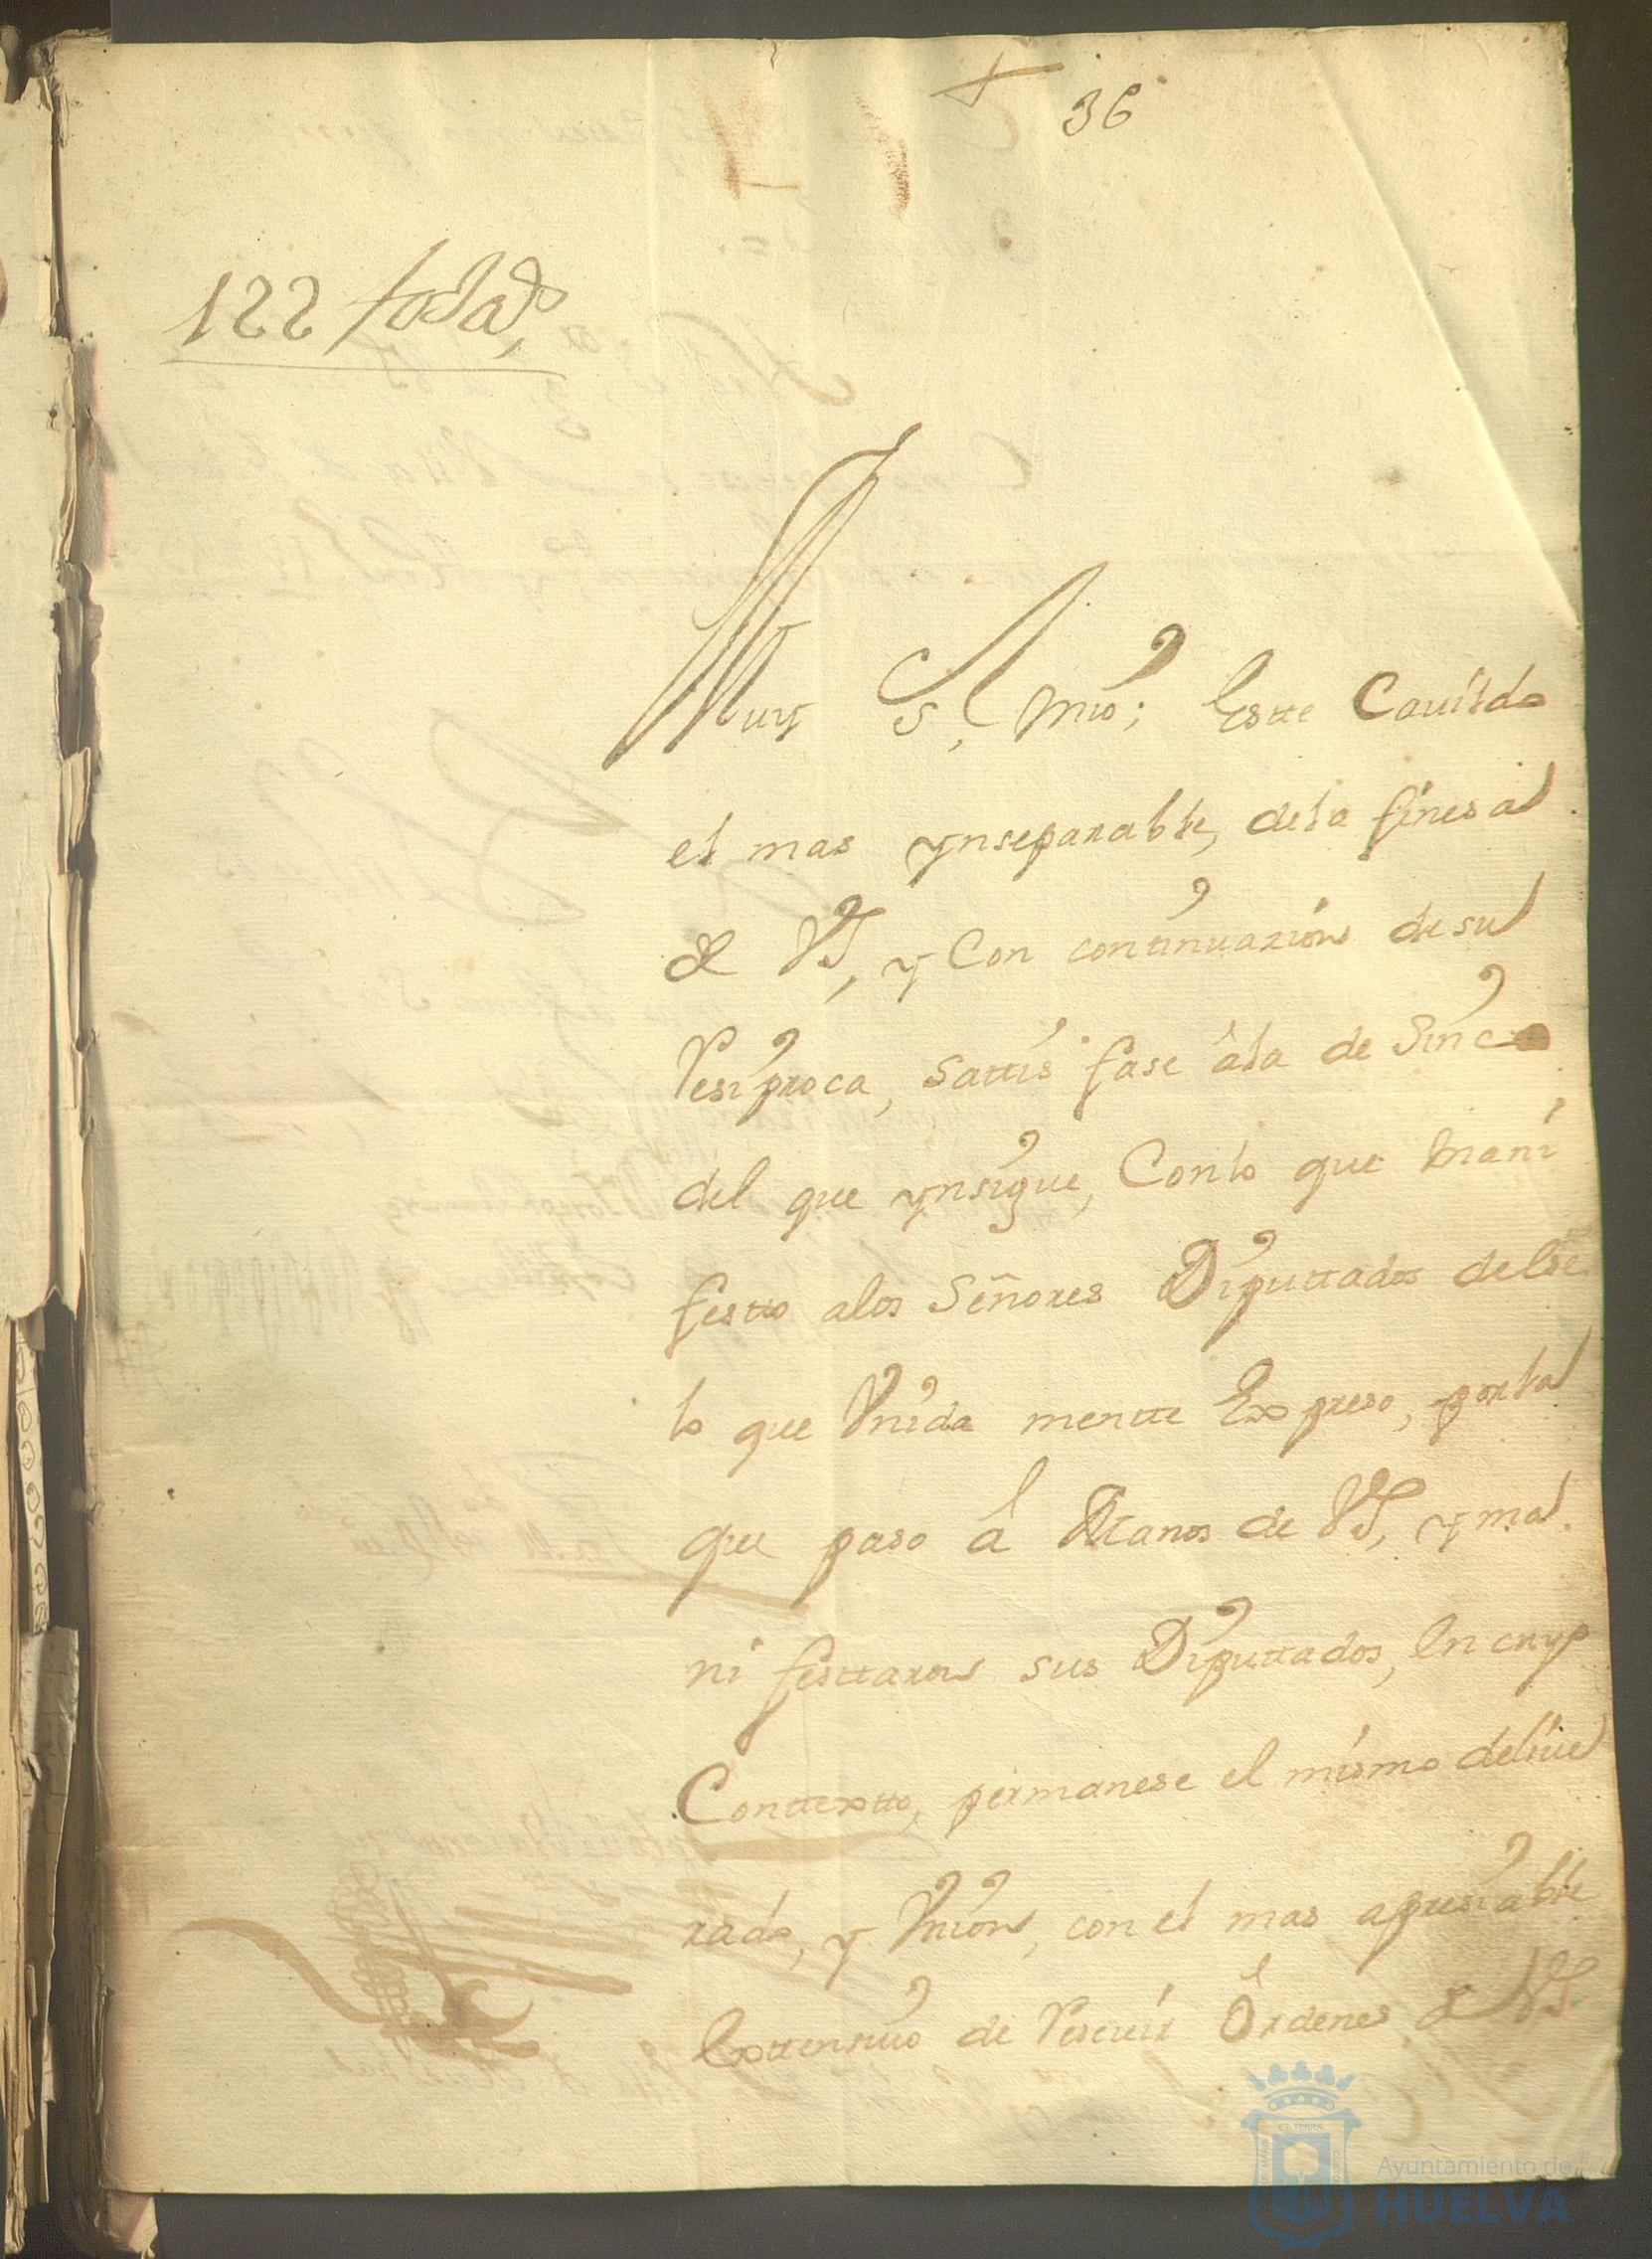 +
36
122 fosads
Muy S. mio; Este Cauildo
el mas ynseparable, dela finesa
de VS, y Con continuazion de su
Resiproca, sattisfase âla de Sinco
del que ynsigue, Conlo que mani
festto alos Señores Diputtados delse
lo que Vnida mentte Expreso, porla
que paso â Manos de VS, y ma
ni festtaron sus Diputtados, En cuyo
Conttextto, permanese el mismo deliue
rado, y Vnion, con el mas apresiable
Exttensiuo de Reseuir Ôrdenes de VS
Ayuntamiento de
HUELVA